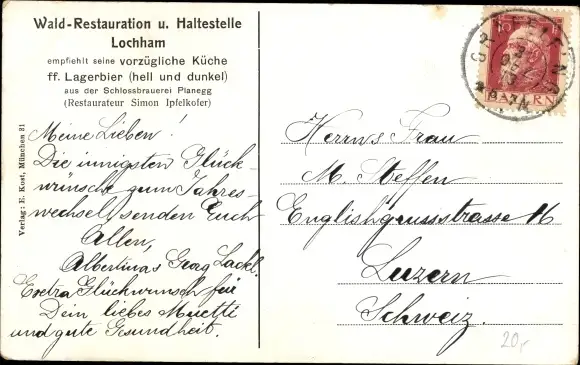 Wald-Restauration u. Haltestelle
Lochham
empfiehlt seine vorzügliche Küche
ff. Lagerbier (hell und dunkel)
aus der Schlossbrauerei Planegg
(Restaurateur Simon Ipfelkofer)
Verlag: E. Kost, München 31
Meine Lieben!
Die innigsten Glück-
wünsche zum Jahres-
wechsel senden Euch
Allen,
Albertina & Georg Lackl.
Extra Glückwunsch für
Dein liebes Muetti
und gute Gesundheit.
10
BAYERN
GRÄFELFING
Herrn u Frau
M. Steffen
Englischgrussstrasse 16
Luzern
Schweiz.
20,-